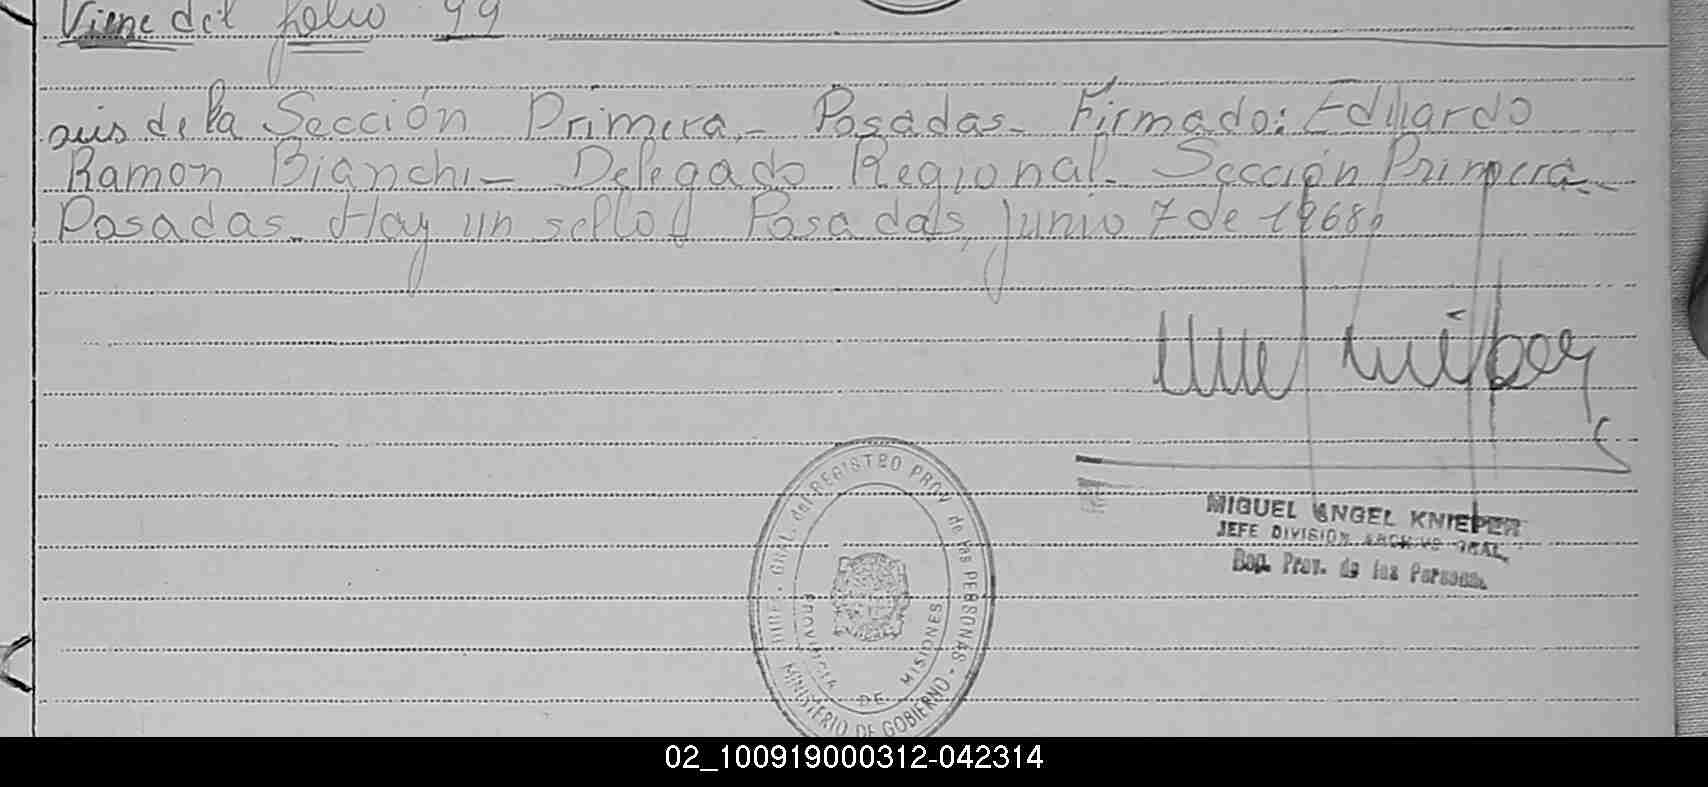 Viene del folio 99
de la Sección Primera.- Posadas- Firmado: Eduardo
Ramon Bianchi- Delegado Regional- Sección Primera-
Posadas- Hay un sello Posadas, junio 7 de 1968.
MIGUEL ANGEL KNIEPER
JEFE DIVISION ARCHIVO GRAL.
Reg. Prov. de las Personas.
DIREC. GRAL. del REGISTRO PROV de las PERSONAS
MINISTERIO DE GOBIERNO
PROVINCIA DE MISIONES
02_100919000312-042314